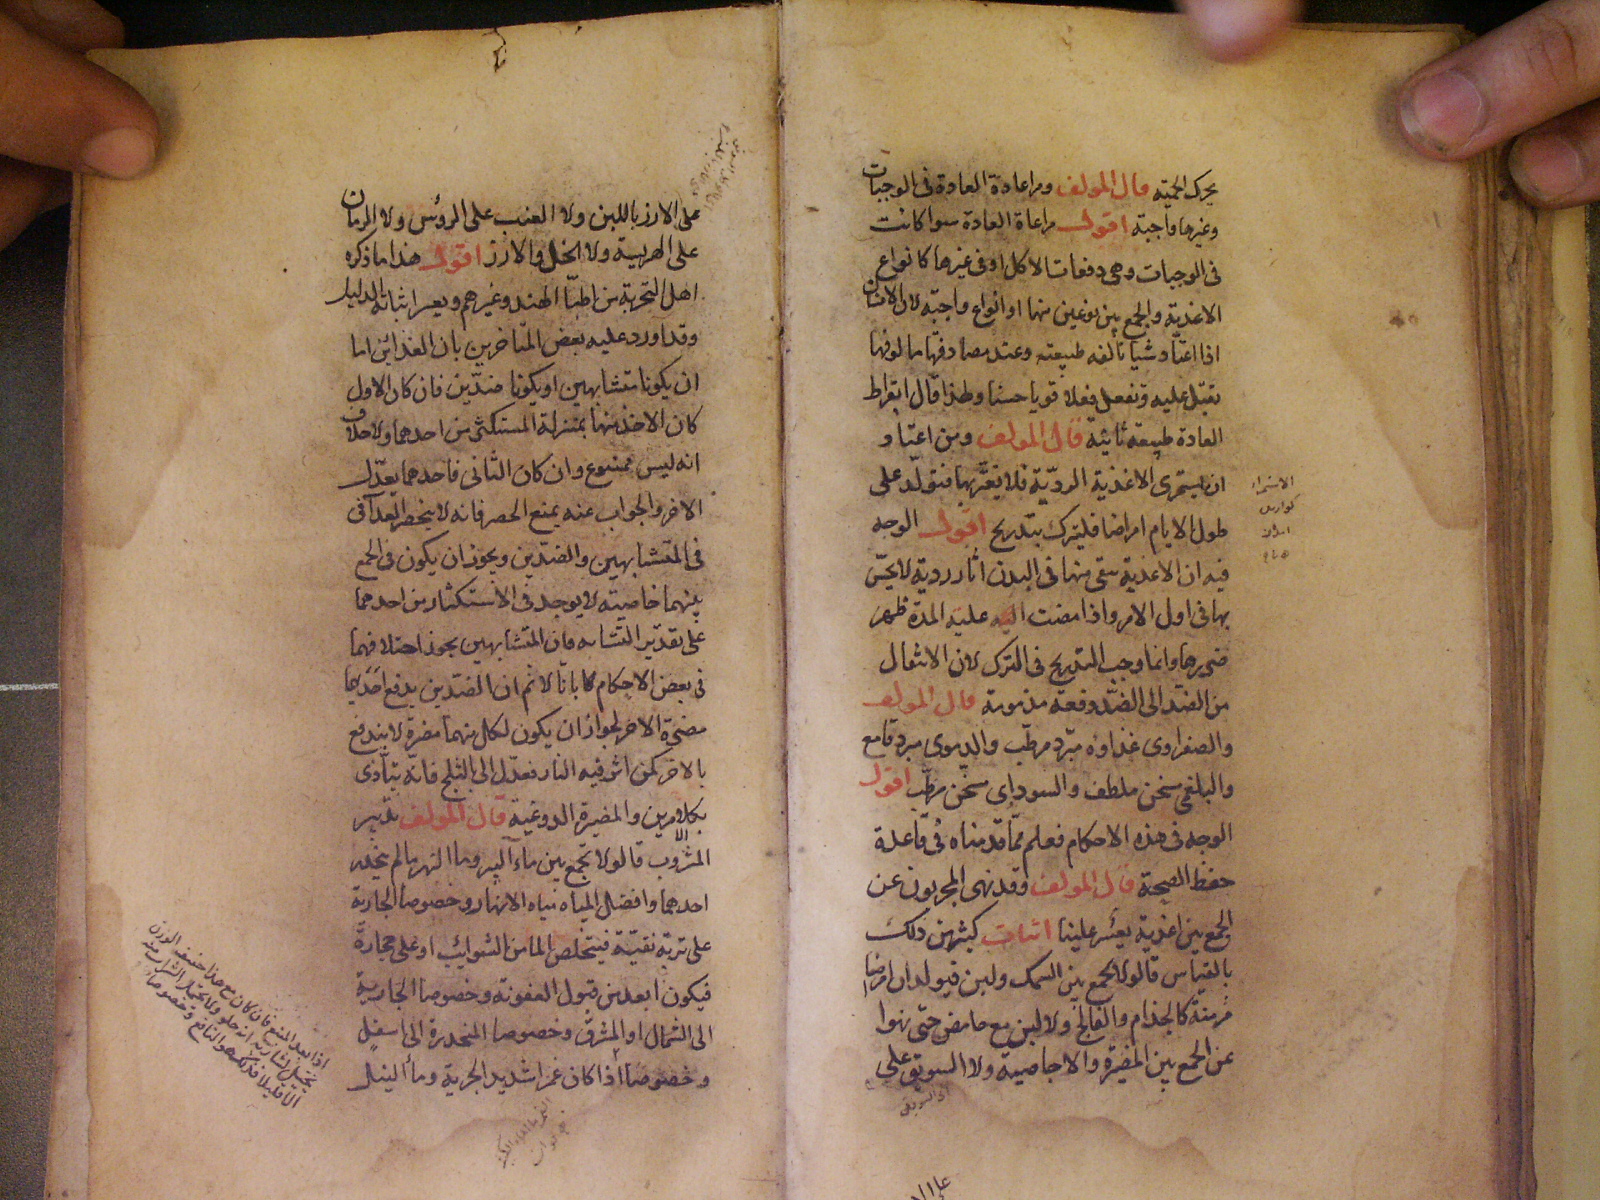 يحرك الحمية قال المولف ومراعادة العادة فى الوجبات
وغيرها واجبة اقول مراعاة العادة سوا كانت
فى الوجبات وهى دفعات الاكل او فى غيرها كانواع
الاغذية والجمع بين نوعين منها او انواع واجبة لان الانسان
اذا اعتاد شيا تالفه طبيعته وعند مصادفتها مالوفها
تقبل عليه وتفعل فعلا قويا حسنا ولهذا قال ابقراط
العادة طبيعة ثانية قال المولف ومن اعتاد
ان يستمرى الاغذية الردية فلا يغتر بها فتولد على
طول الايام امراضا فليترك بتدريج اقول الوجه
فيه ان الاغذية يبقى منها فى البدن اثار ردية لا يحس
بها فى اول الامر واذا مضت عليه المدة ظهر
ضررها وانما وجب التدريج فى الترك لان الانتقال
من الضد الى الضد دفعة مذمومة قال المولف
والصفراوى غذاوه مبرد مرطب والدموى مبرد قامع
والبلغمى مسخن ملطف والسوداوى مسخن مرطب اقول
الوجه فى هذه الاحكام فعلم مما قدمناه فى قاعدة
حفظ الصحة قال المولف وقد نهى المجربون عن
الجمع بين اغذية يعسر علينا اثبات كثير من ذلك
بالقياس قالوا لا يجمع بين السمك ولبن فيولدان امراضا
مزمنة كالجذام والفالج ولا لبن مع حامض حتى نهوا
عن الجمع بين المضيرة والاجاصية ولا السويق على
على الارز باللبن ولا العنب على الروس ولا الرمان
على الهريسة ولا الخل والارز اقول هذا ما ذكره
اهل التجربة من اطبا الهند وغيرهم ويعسر اثباته بالدليل
وقد اورد عليه بعض المتاخرين بان الغذائين اما
ان يكونا متشابهين او يكونا ضدين فان كان الاول
كان الاخذ منهما بمنزلة المستكثر من احدهما ولا خلاف
انه ليس بممنوع وان كان الثانى فاحدهما يعدل
الاخر والجواب عنه بمنع الحصر فانه لا ينحصر
فى المتشابهين والضدين ويجوز ان يكون فى الجمع
بينهما خاصية لا يوجد فى الاستكثار من احدهما
على تقدير التشابه فان المتشابهين يجوز اختلافهما
فى بعض الاحكام لا نم ان الضدين يدفع احديهما
مضرة الاخر لجواز ان يكون لكل منهما مضرة لا يندفع
بالاخر كمن اثر فيه النار فعدل الى الثلج فانه يتاذى
بكلا الامرين والمضيرة الدوغية قال المولف تدبير
المشروب قالوا لا تجمع بين ماء البير وما النهر ما لم ينحدر
احدهما وافضل المياه مياه الانهار وخصوصا الجارية
على تربة نقية فيتخلص الما من الشوائب او على حجارة
فيكون ابعد من قبول العفونة وخصوصا الجارية
الى الشمال او المشرق وخصوصا المنحدرة الى اسفل
وخصوصا اذا كان غمرا شديد الجرية وما النيل
اذا بعد المنبع فان كان مع هذا خفيف الوزن
يخيل لشاربه انه حلو ولا يحتمل الشراب منه
الا قليلا فذلك هو النافع وخصوصا